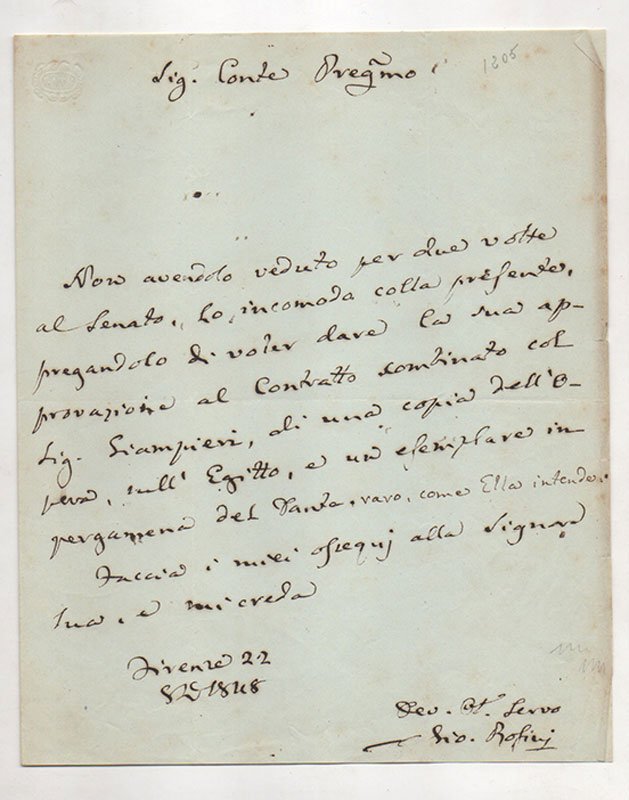 Sig. Conte Pregmo
1805
Non avendolo veduto per due volte
al Senato, Lo incomodo colla presente,
pregandolo di voler dare la sua ap-
provazione al Contratto combinato col
Sig. Giampieri, di una copia dell'O-
pera, sull'Egitto, e un esemplare in
pergamena del Dante, raro, come Ella intende.
Faccia i miei ossequj alla Signora
Sua, e mi creda
Firenze 22
1848
Dev. Servo
Gio. Rosini